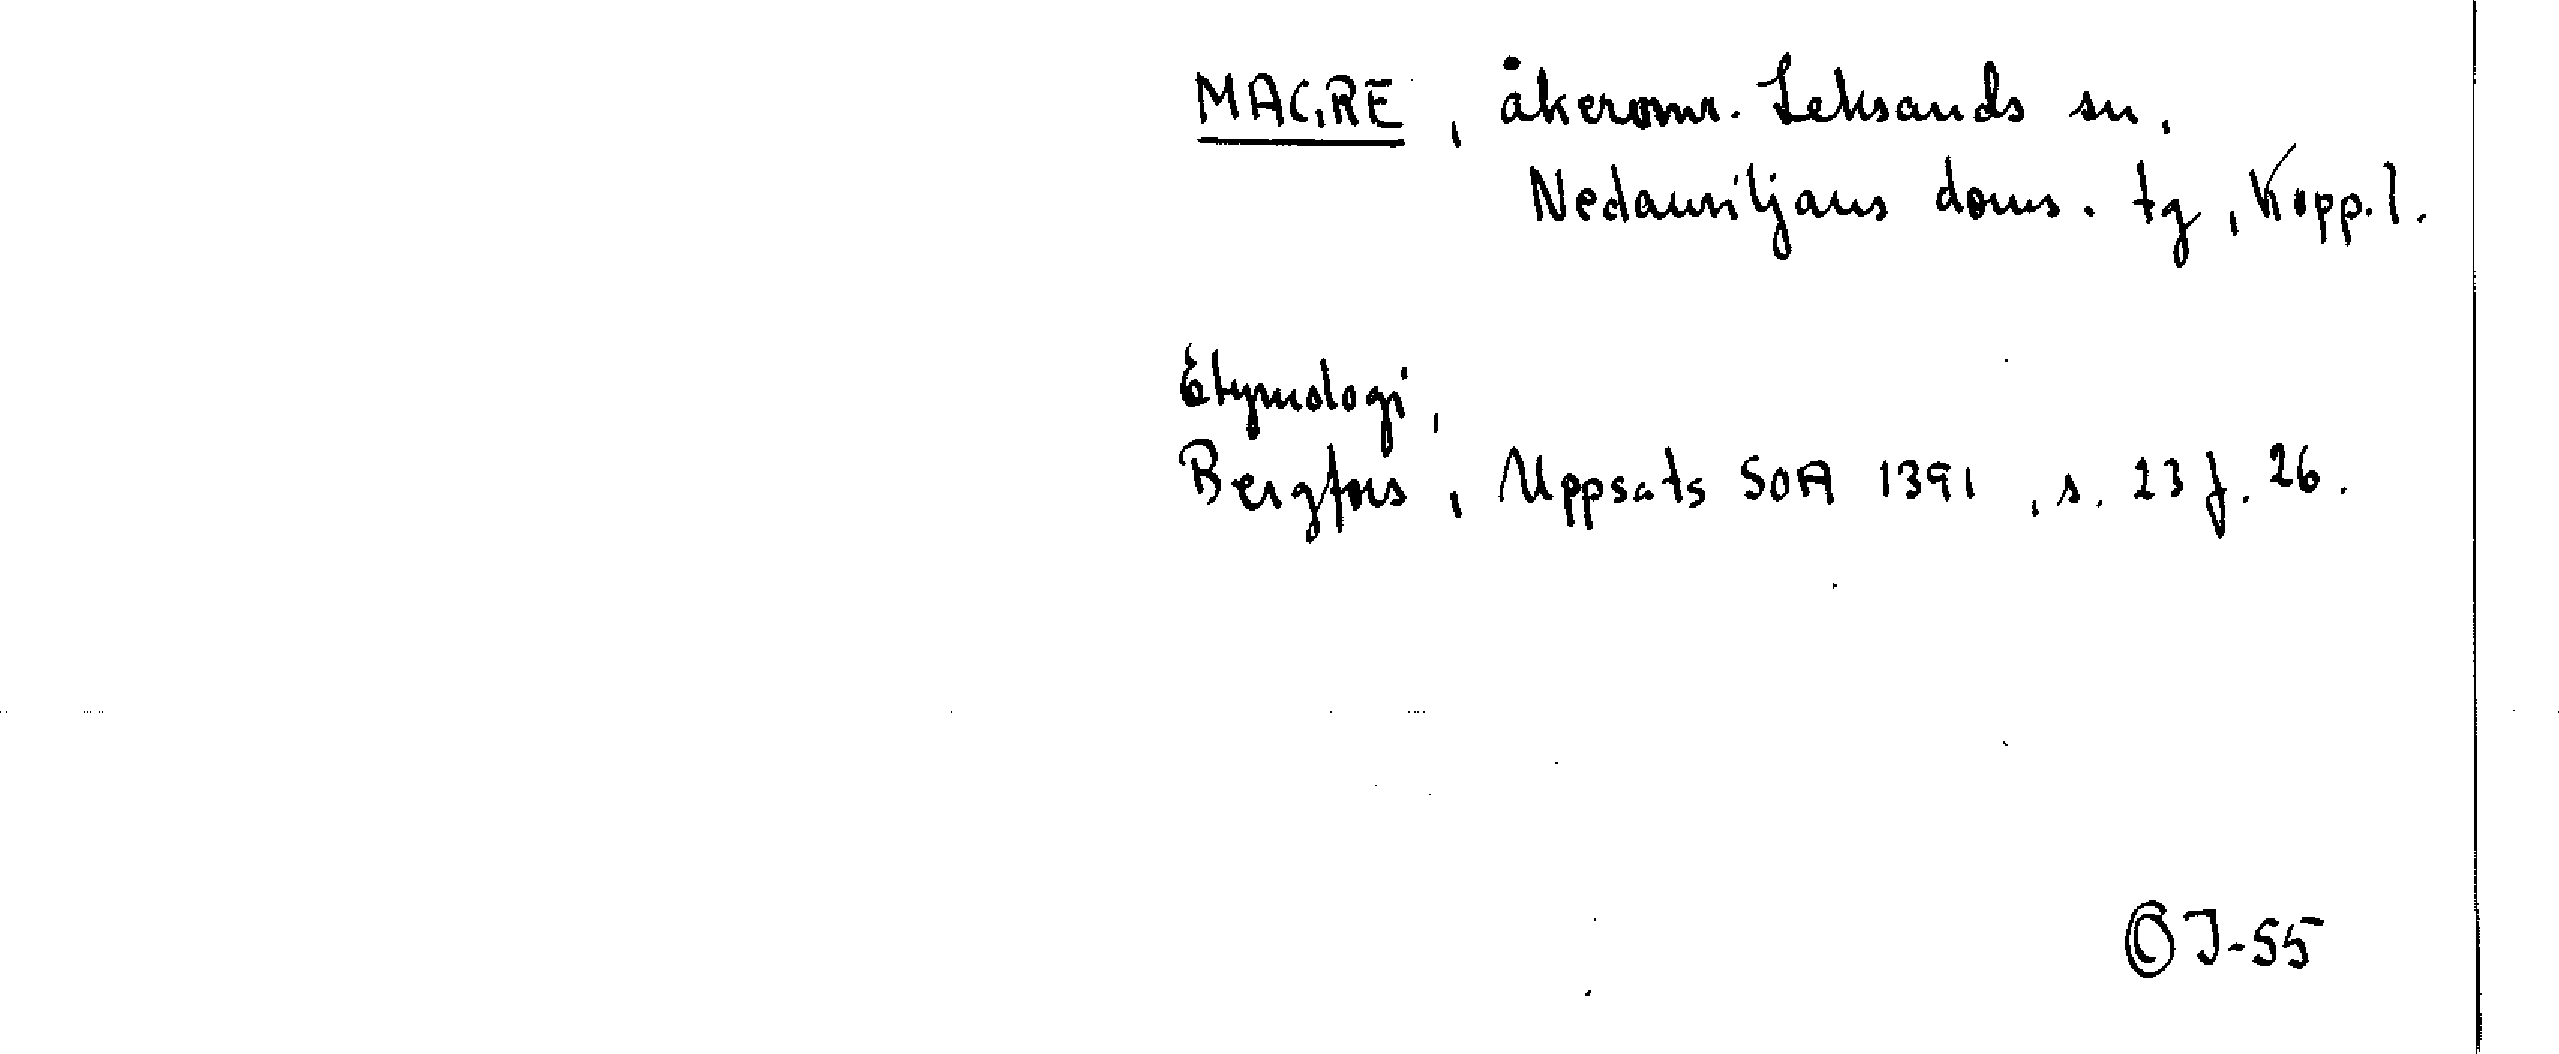 MAGRE, åkeromr. Leksands sn,
Nedansiljans doms. tg, Kopp. l.
Etymologi,
Bergfors, Uppsats SOA 1391, s. 23 f. 26.
© J-55